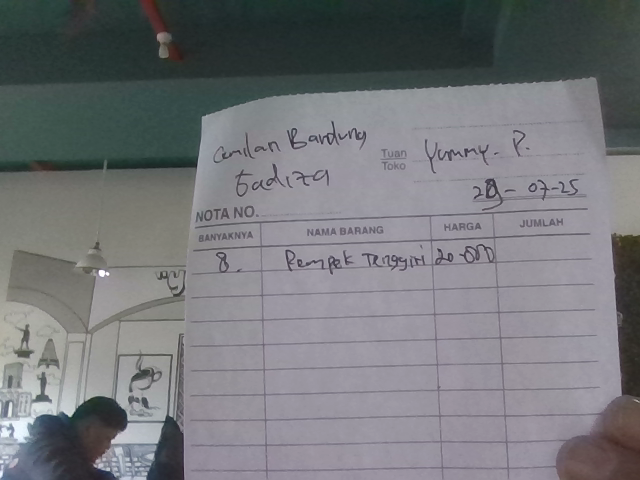 Cemilan Bandung
Gadiza
Tuan
Toko
Yummy. P.
29-07-25
NOTA NO.
BANYAKNYA NAMA BARANG HARGA JUMLAH
8. Pempek Tenggiri 20.000